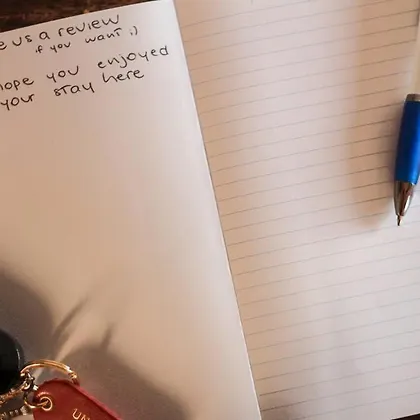 e us a review
if you want :)
hope you enjoyed
your stay here
UN